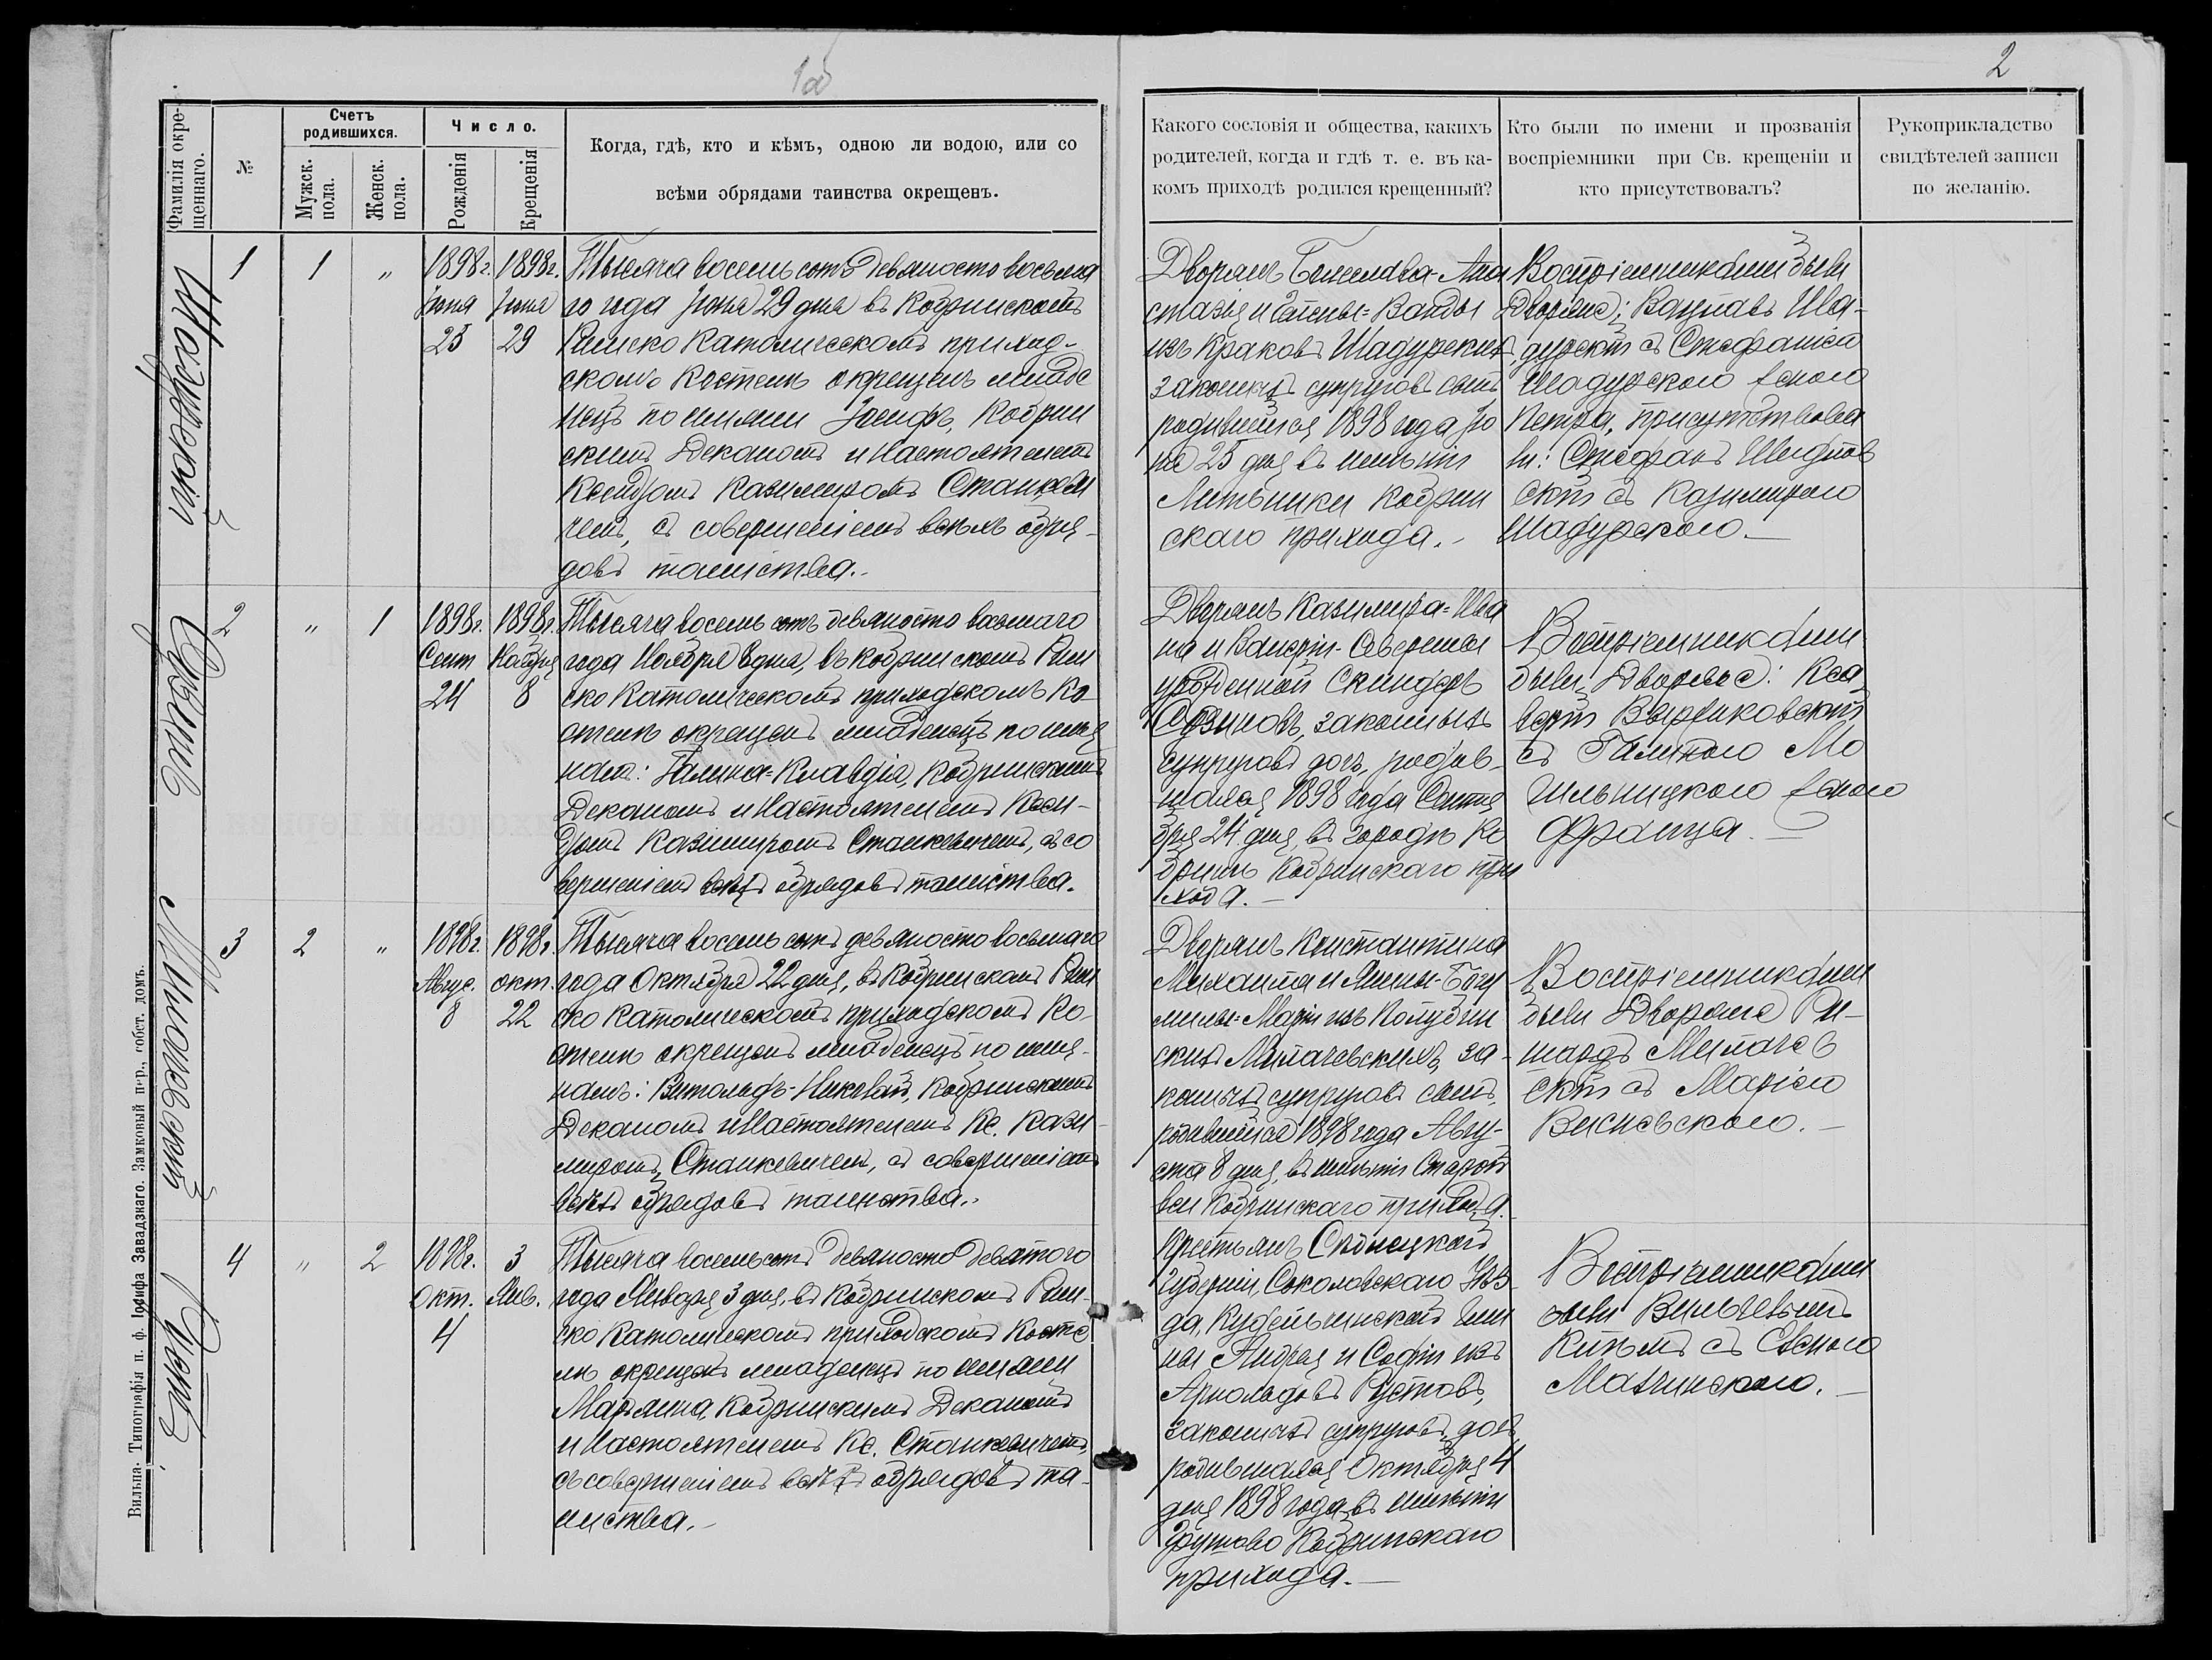 1об
2
Фамилія окрещеннаго.
№
Счетъ родившихся.
Мужск. пола.
Женск. пола.
Число.
Рожденія
Крещенія
Когда, гдѣ, кто и кѣмъ, одною ли водою, или со
всѣми обрядами таинства окрещенъ.
Какого сословія и общества, какихъ
родителей, когда и гдѣ т. е. въ ка-
комъ приходѣ родился крещенный?
Кто были по имени и прозванія
воспріемники при Св. крещеніи и
кто присутствовалъ?
Рукоприкладство
свидѣтелей записи
по желанію.
Шадурскій
1
1
"
1898г. 1898г.
Іюня Іюня
25 29
Тысяча восемь сотъ девяносто восьма
го года Іюня 29 дня въ Кобринскомъ
Римско Католическомъ приход-
скомъ Костелѣ окрещенъ младе
нецъ по имени Іосифъ, Кобрин
скимъ Деканомъ и Настоятелемъ
Ксендзомъ Казимиромъ Станкеви
чемъ, съ совершеніемъ всѣхъ обря-
довъ таинства.
Дворянъ Болеслава-Ана
стазія и Елены-Ванды
изъ Краковъ Шадурскихъ
законныхъ супруговъ сынъ
родившійся 1898 года Ію
ня 25 дня въ имѣніи
Литвинки Кобрин
скаго прихода.
Воспріемниками были
Дворяне: Вацлавъ Ша-
дурскій съ Стефаніею
Шадурскою женою
Петра, присутствова
ли: Стефанъ
скій съ Казимирою
Шадурскою.
2
"
1
1898г. 1898г.
Сент Ноября
24 8
Тысяча восемь сотъ девяносто восьмаго
года Ноября 8 дня, въ Кобринскомъ Рим
ско Католическомъ приходскомъ Ко
стелѣ окрещенъ младенецъ по име
намъ: Галина-Клавдія, Кобринскимъ
Деканомъ и Настоятелемъ Ксен-
дзомъ Казимиромъ Станкевичемъ, съ со
вершеніемъ всѣхъ обрядовъ таинства.
Дворянъ Казимира-Ива
на и Валеріи-Северины
урожденной Скиндеръ
законныхъ
супруговъ дочь, родив-
шаяся 1898 года Сентя
бря 24 дня, въ городѣ Ко
бринѣ Кобринскаго при
хода.
Воспріемниками
были Дворяне: Кса
верій
съ Галиною Мо
гильницкою женою
Франца.
Милачевскій
3
2
"
1898г. 1898г.
Авгус. окт.
8 22
Тысяча восемь сотъ девяносто восьмаго
года Октября 22 дня, въ Кобринскомъ Рим
ско Католическомъ приходскомъ Ко-
стелѣ окрещенъ младенецъ по име-
намъ: Витольдъ-Николай, Кобринскимъ
Деканомъ и Настоятелемъ Кс. Кази-
миромъ Станкевичемъ, съ совершеніемъ
всѣхъ обрядовъ таинства.
Дворянъ Константина
Михаила и Янины-Богу
милы-Маріи изъ
скихъ Милачевскихъ, за-
конныхъ супруговъ сынъ,
родившійся 1898 года Авгу-
ста 8 дня, въ имѣніи
Кобринскаго прихода.
Воспріемниками
были Дворяне Ри-
шардъ Милачев
скій съ Маріею
Висневскою.
4
"
2
1898г. 3
Окт. Янв.
4
Тысяча восемьсотъ девяносто девятого
года Января 3 дня, въ Кобринскомъ Рим-
ско Католическомъ приходскомъ Косте
лѣ окрещенъ младенецъ по имени
Марьянна, Кобринскимъ Деканомъ
и Настоятелемъ Кс. Станкевичемъ,
съ совершеніемъ всѣхъ обрядовъ та-
инства.
Крестьянъ Сѣдлецкой
губерніи, Соколовскаго Уѣз-
да, гми
ны Андрея и Софіи изъ
Арнольдовъ
законныхъ супруговъ, дочь
родившаяся Октября 4
дня 1898 года въ имѣніи
Кобринскаго
прихода.
Воспріемниками
были Вильгельмъ
съ
Вильна. Типографія п. ф. Іосифа Завадзкаго. Замковый пер., собст. домъ.